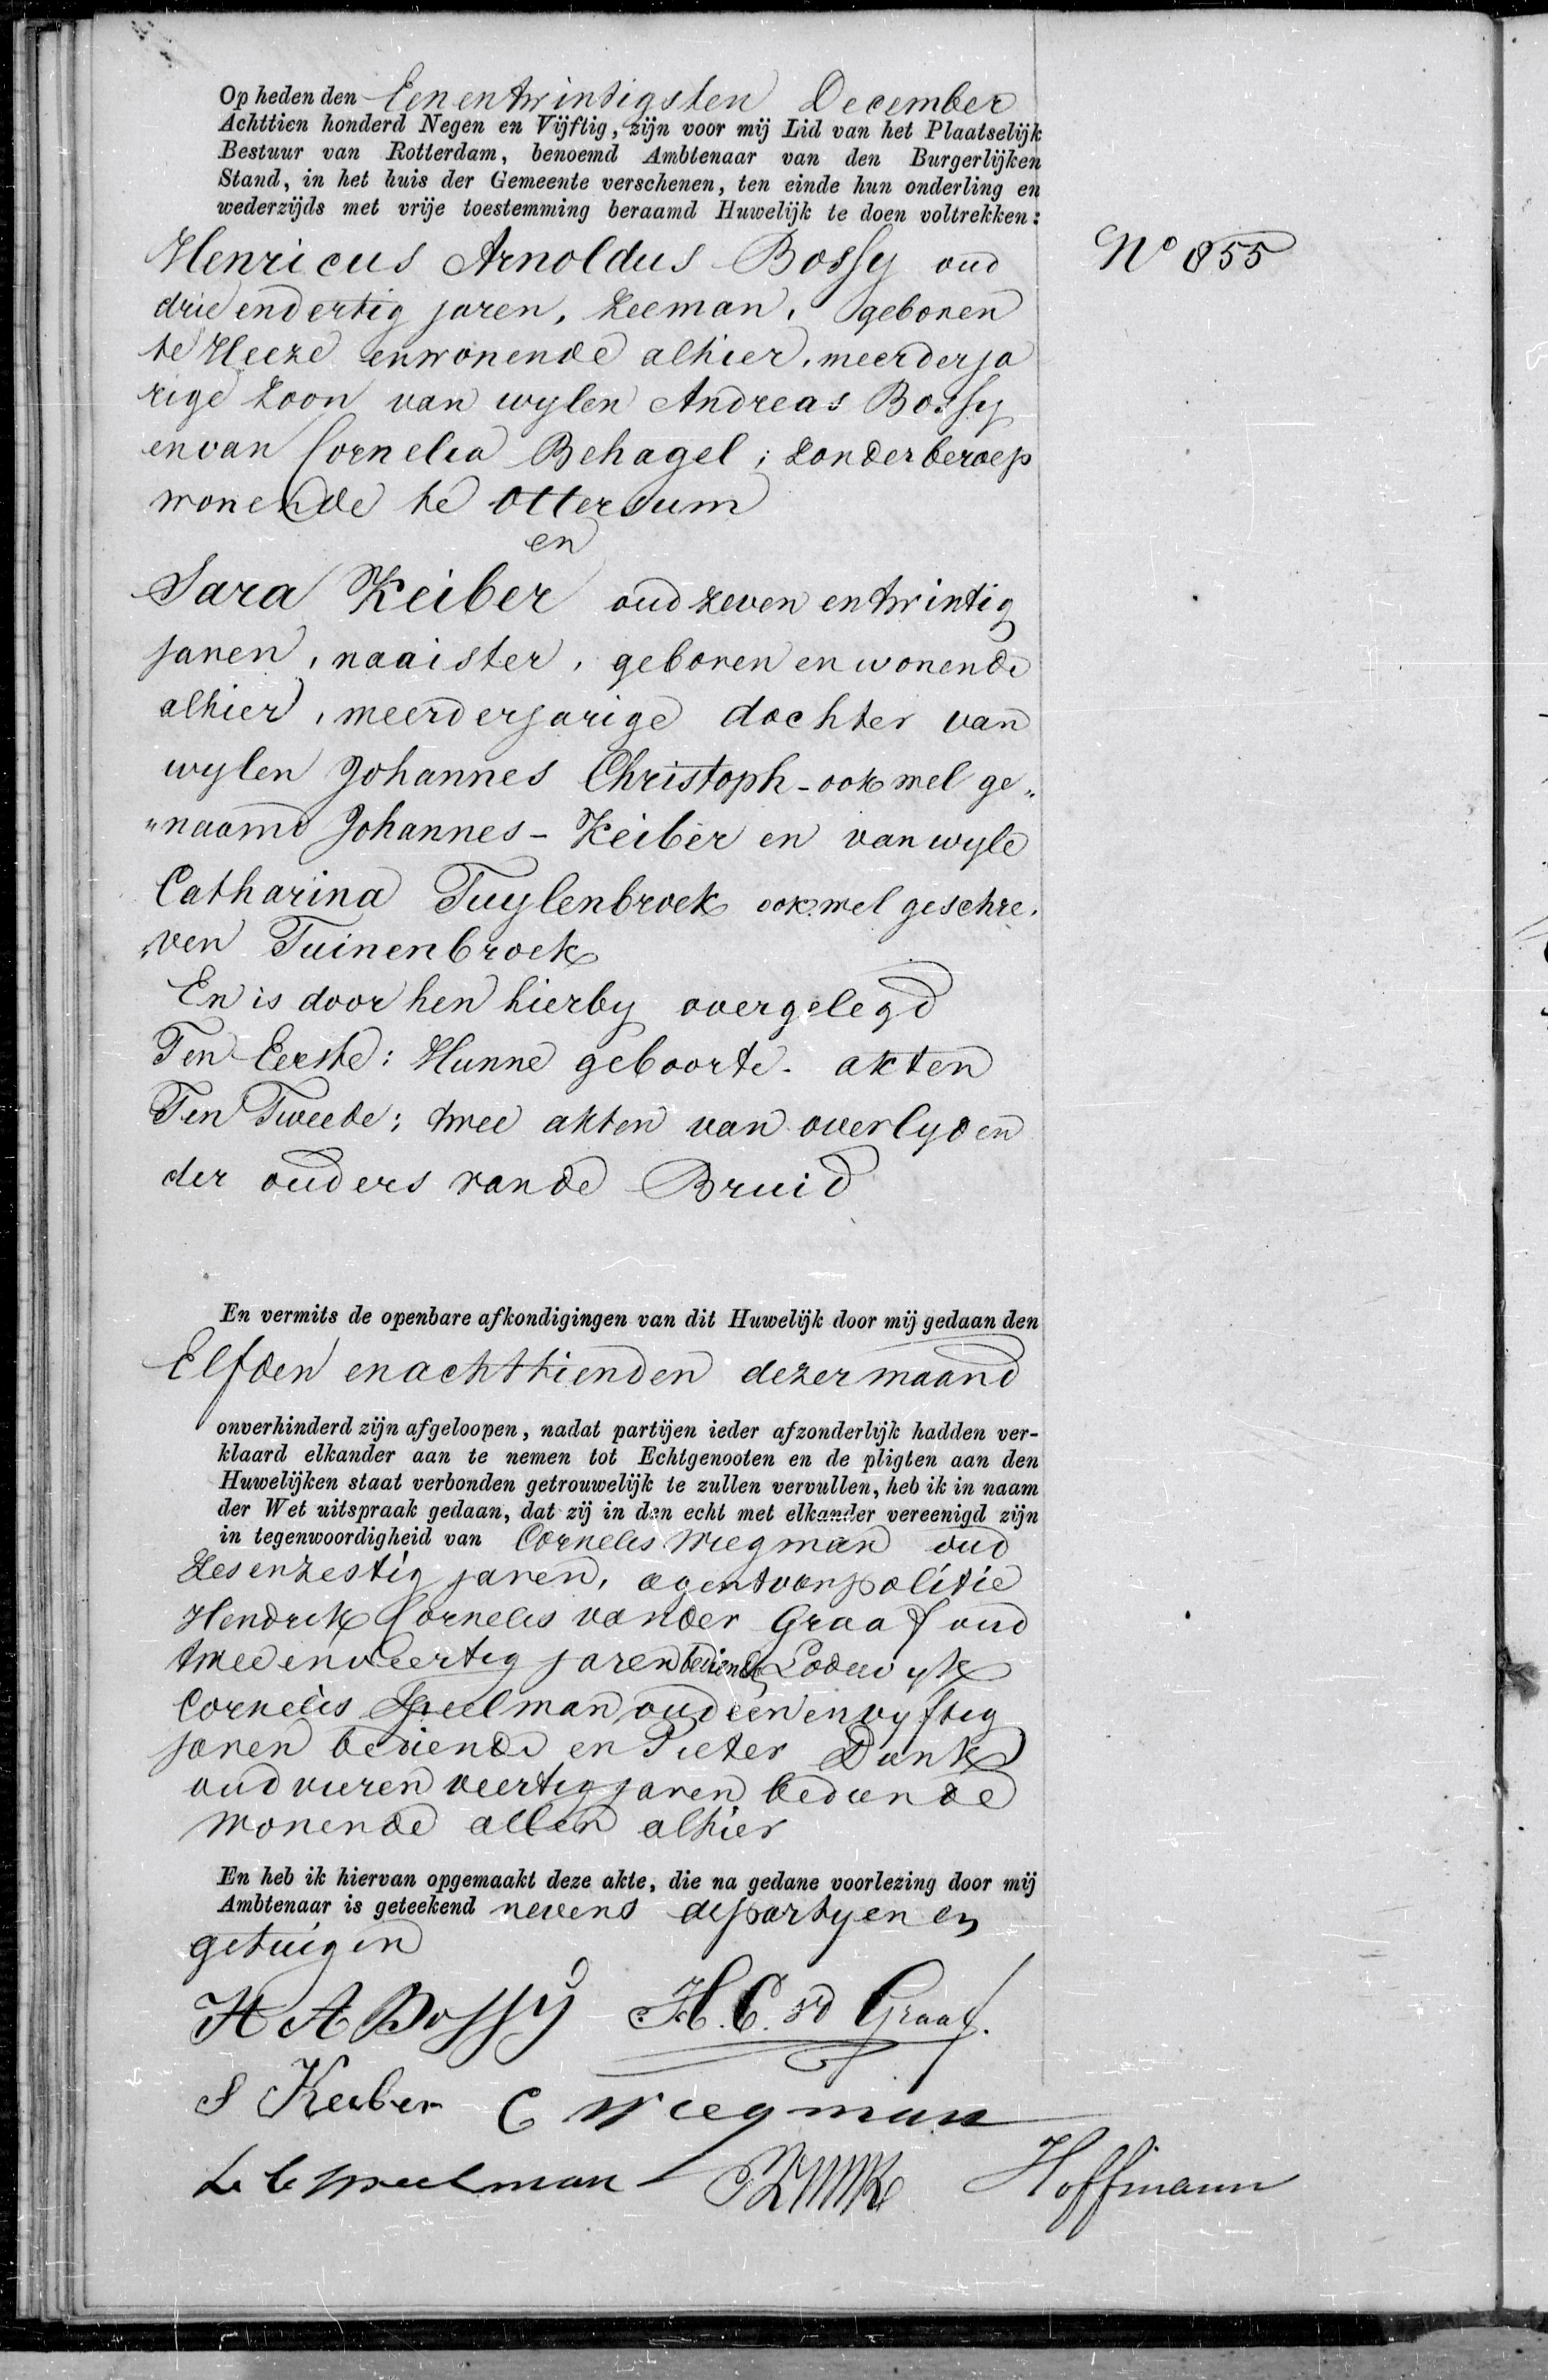 Op heden den Een en twintigsten December
Achttien honderd Negen en Vijftig, zijn voor mij Lid van het Plaatselijk
Bestuur van Rotterdam, benoemd Ambtenaar van den Burgerlijken
Stand, in het huis der Gemeente verschenen, ten einde hun onderling en
wederzijds met vrije toestemming beraamd Huwelijk te doen voltrekken:
Henricus Arnoldus Bossy oud
drie en dertig jaren, zeeman, geboren
te Heeze en wonende alhier, meerderja
rige zoon van wylen Andreas Bossy
en van Cornelia Behagel; zonder beroep
wonende te Ottersum
en
Sara Keiber oud zeven en twintig
jaren, naaister, geboren en wonende
alhier, meerderjarige dochter van
wylen Johannes Christoph - ook wel ge„
„naamd Johannes - Keiber en van wyle
Catharina Tuylenbroek ook wel geschre„
„ven Tuinenbroek
En is door hen hierby overgelegd
Ten Eerste: Hunne geboorte-akten
Ten Tweede: twee akten van overlyden
der ouders van de Bruid
N° 855
En vermits de openbare afkondigingen van dit Huwelijk door mij gedaan den
Elfden en achttienden dezer maand
onverhinderd zijn afgeloopen, nadat partijen ieder afzonderlijk hadden ver-
klaard elkander aan te nemen tot Echtgenooten en de pligten aan den
Huwelijken staat verbonden getrouwelijk te zullen vervullen, heb ik in naam
der Wet uitspraak gedaan, dat zij in den echt met elkander vereenigd zijn
in tegenwoordigheid van Cornelis Wiegman oud
zes en zestig jaren, agent van politie
Hendrik Cornelis van der Graaf oud
twee en veertig jaren bediende Lodewyk
Cornelis Speelman oud een en vyftig
jaren bediende en Pieter Dunk
oud vier en veertig jaren bediende
wonende allen alhier
En heb ik hiervan opgemaakt deze akte, die na gedane voorlezing door mij
Ambtenaar is geteekend nevens de partyen en
getuigen
H A Bossy H. C. vd Graaf.
S Keiber C Wiegman
L C Speelman Hoffmann